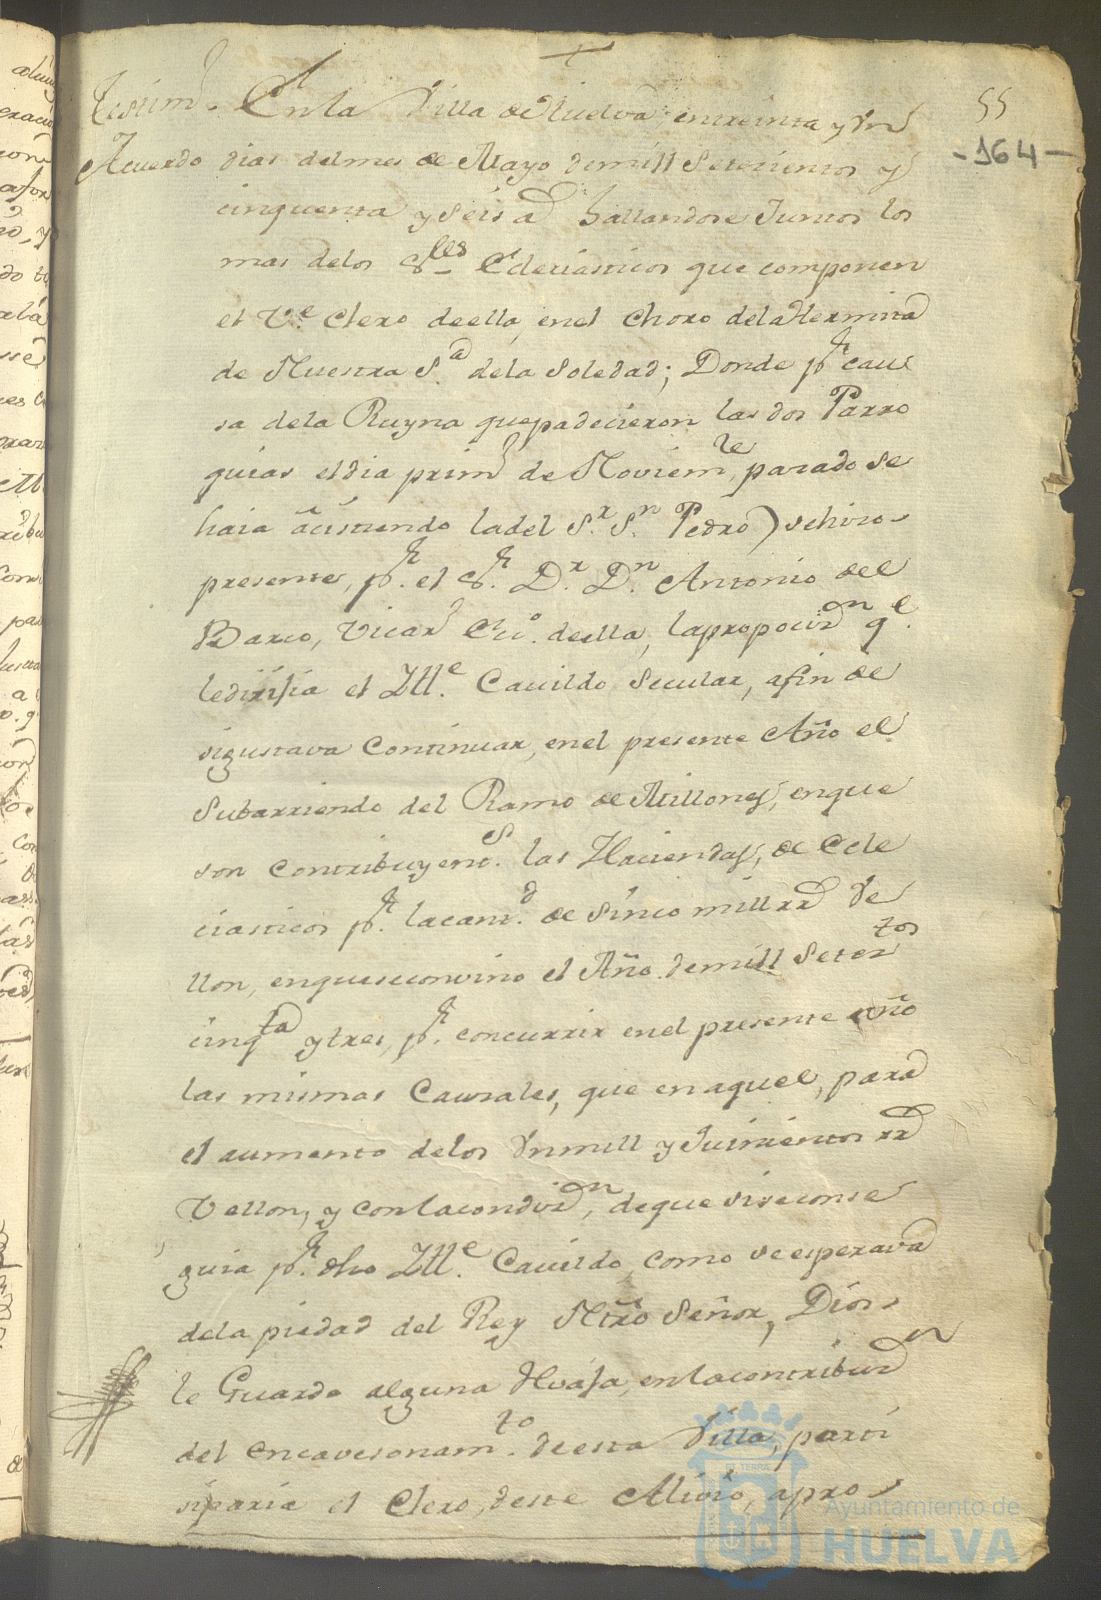 55
-164-
Testimº. En la Villa de Huelva, en treinta y Un
Acuerdo dias del mes de Mayo de mill Setecientos y
cinquenta y Seis aº hallandose Juntos los
mas de los Sres Eclesiasticos que componen
el Ve. Clero de ella, en el Choro de la Hermita
de Nuestra S.a de la Soledad; Donde pr. cau
sa de la Ruyna que padecieron las dos Parro
quias el dia primº de Noviemre, pasado se
haia acistiendo la del S.r S.n Pedro) se hizo
presente, pr. el Sr. D.r D.n Antonio del
Barco, Vicarº Ecco. de ella, la propocizn q.e
le dirijia el Ille. Cavildo Secular, afin de
si gustava Continuar, en el presente Año el
Subarriendo del Ramo de Millones, en que
son Contribuyents. las Haciendas, de Ecle
ciasticos pr. la cant.d de Sinco mill rrs Ve
llon, en que se convino el Año de mill Seteztos
cinqta y tres, pr. concurrir en el presente año
las mismas Causales, que en aquel, para
el aumento de los Un mill y Quinientos rrs
Vellon, y con la condizn, de que si se conse
guia pr. dho Ille. Cavildo, como se esperava
de la piedad del Rey Ntro Señor, Dios
le Guarde alguna Rvaja, en la contribuzn
del encavesonamto. de esta Villa, parti
siparia el Clero, deste Alivio, apro
Ayuntamiento de
HUELVA